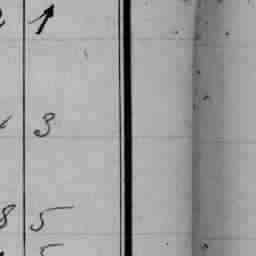 1
3
8 5
5